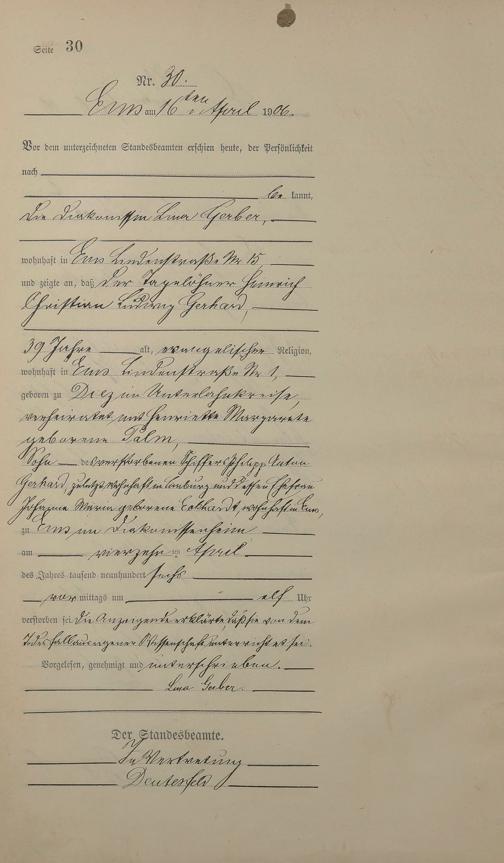 Seite 30
Nr. 30.
Ems am 16ten April 1906.
Vor dem unterzeichneten Standesbeamten erschien heute, der Persönlichkeit
nach
be kannt,
die Diakonissin Lina Gerber,
wohnhaft in Ems Lindenstraße Nr 15
und zeigte an, daß der Tagelöhner Heinrich
Christian Ludwig Gerhard,
39 Jahre alt, evangelischer Religion,
wohnhaft in Ems Lindenstraße Nr 1,
geboren zu Diez im Unterlahnkreise,
verheiratet mit Henriette Margarete
geborene Palm,
Sohn des verstorbenen Schiffers Philipp Anton
Gerhard, zuletzt wohnhaft in und dessen Ehefrau
Johanna Maria geborene wohnhaft in Ems,
zu Ems im Diakonissenheim
am vierzehn ten April
des Jahres tausend neunhundert sechs
vor mittags um elf Uhr
verstorben sei. Die Anzeigende erklärte, daß sie von dem
Todesfall aus eigener Wissenschaft unterrichtet sei.
Vorgelesen, genehmigt und unterschrieben.
Lina Gerber.
Der Standesbeamte.
In Vertretung